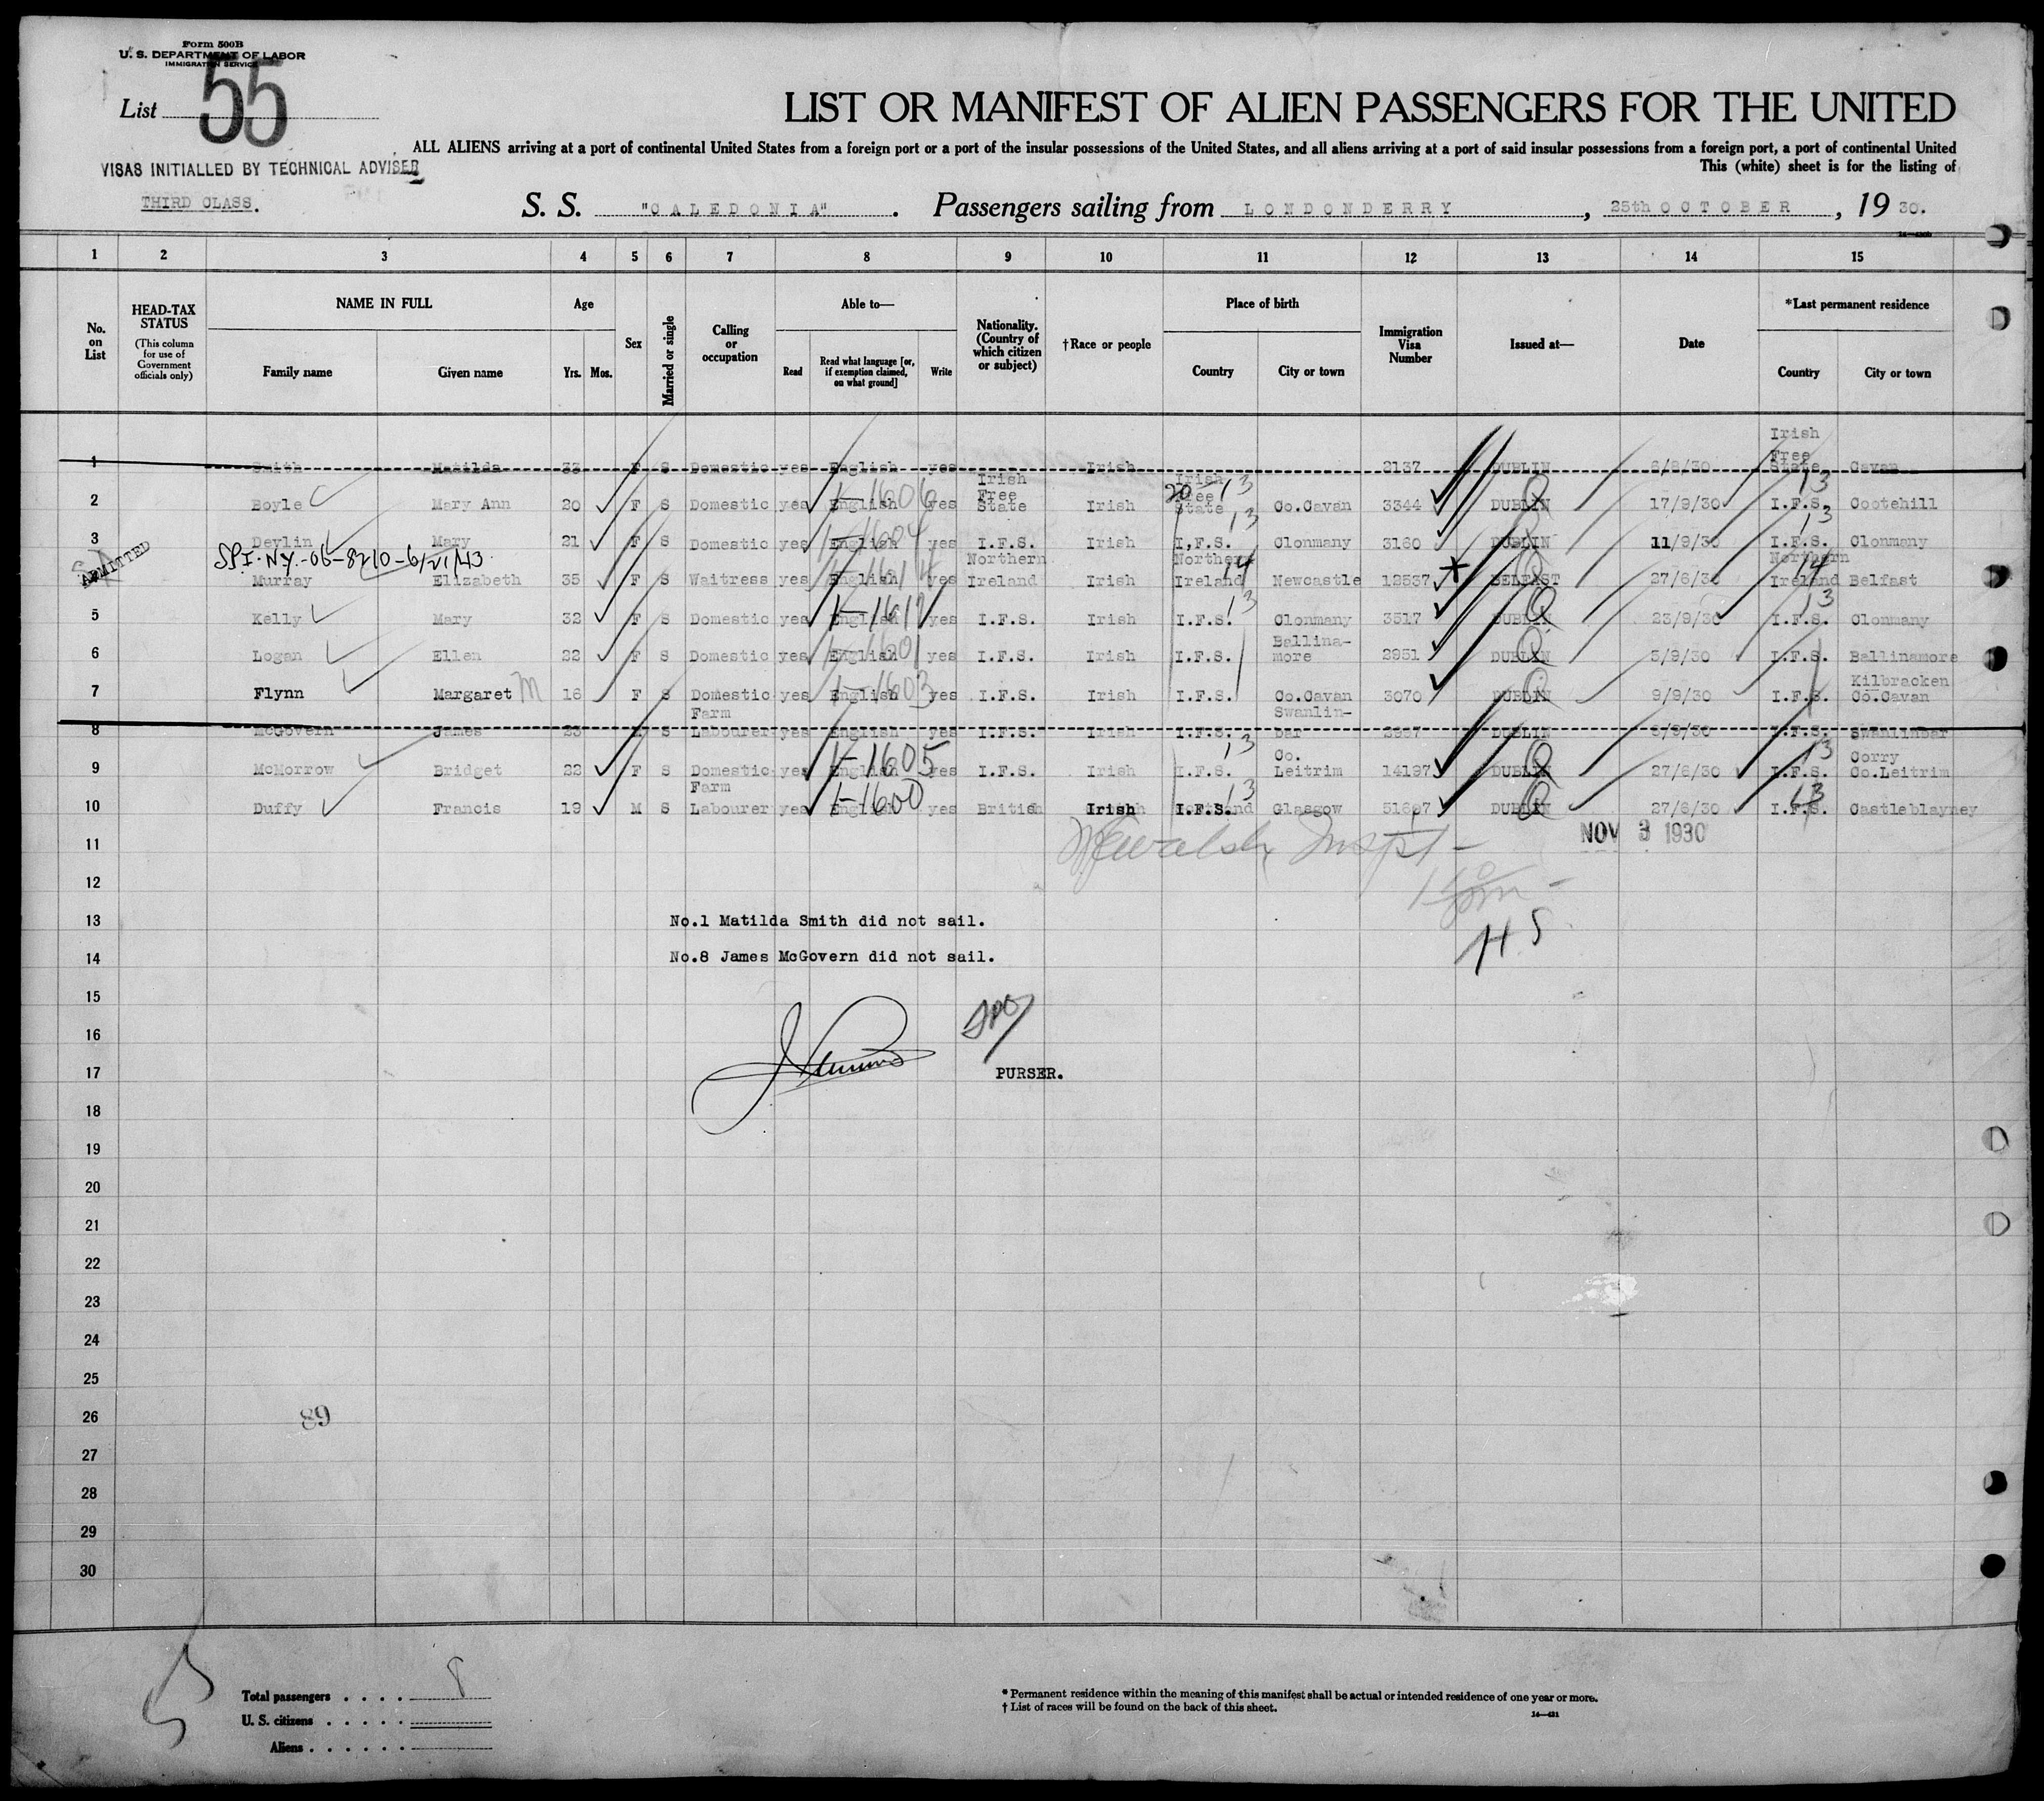 Form 500B
U. S. DEPARTMENT OF LABOR
IMMIGRATION SERVICE
List 55
LIST OR MANIFEST OF ALIEN PASSENGERS FOR THE UNITED
ALL ALIENS arriving at a port of continental United States from a foreign port or a port of the insular possessions of the United States, and all aliens arriving at a port of said insular possessions from a foreign port, a port of continental United
VISAS INITIALLED BY TECHNICAL ADVISER
This (white) sheet is for the listing of
THIRD CLASS.
S. S. "CALEDONIA". Passengers sailing from LONDONDERRY, 25th OCTOBER, 19 30.
1 2 3 4 5 6 7 8 9 10 11 12 13 14 15
No. on List
HEAD-TAX STATUS
(This column for use of Government officials only)
NAME IN FULL
Family name Given name
Age
Yrs. Mos.
Sex
Married or single
Calling or occupation
Able to—
Read
Read what language [or, if exemption claimed, on what ground]
Write
Nationality. (Country of which citizen or subject)
†Race or people
Place of birth
Country City or town
Immigration Visa Number
Issued at—
Date
*Last permanent residence
Country City or town
1 Smith Matilda 33 F S Domestic yes English yes Irish 2137 DUBLIN 6/6/30 Irish Free State Cavan
2 Boyle Mary Ann 20 F S Domestic yes English yes Irish Free State Irish Irish Free State Co.Cavan 3344 DUBLIN 17/9/30 I.F.S. Cootehill
1-1606 20 13 13
3 Devlin Mary 21 F S Domestic yes English yes I.F.S. Irish I,F.S. Clonmany 3160 DUBLIN 11/9/30 I.F.S. Clonmany
1-1604 13 13
ADMITTED
Murray Elizabeth 35 F S Waitress yes English yes Northern Ireland Irish Northern Ireland Newcastle 12537 BELFAST 27/6/30 Northern Ireland Belfast
14 14
5 Kelly Mary 32 F S Domestic yes English yes I.F.S. Irish I.F.S. Clonmany 3517 DUBLIN 23/9/30 I.F.S. Clonmany
13 13
6 Logan Ellen 22 F S Domestic yes English yes I.F.S. Irish I.F.S. Ballina-more 2951 DUBLIN 5/9/30 I.F.S. Ballinamore
1-1601
7 Flynn Margaret M 16 F S Domestic yes English yes I.F.S. Irish I.F.S. Co.Cavan 3070 DUBLIN 9/9/30 I.F.S. Kilbracken Co.Cavan
1-1603
8 McGovern James 23 M S Farm Labourer yes English yes I.F.S. Irish I.F.S. Swanlin-bar DUBLIN I.F.S. Swanlinbar
9 McMorrow Bridget 22 F S Domestic yes English yes I.F.S. Irish I.F.S. Co. Leitrim 14197 DUBLIN 27/6/30 I.F.S. Corry Co.Leitrim
1-1605 13 13
10 Duffy Francis 19 M S Farm Labourer yes English yes British Irish I.F.S. Glasgow DUBLIN 27/6/30 I.F.S. Castleblayney
1-1600 13 13
11 NOV 3 1930
12
13 No.1 Matilda Smith did not sail.
14 No.8 James McGovern did not sail.
15
16
17 PURSER.
18
19
20
21
22
23
24
25
26 89
27
28
29
30
Total passengers . . . . 8
U. S. citizens . . . . .
Aliens . . . . . .
* Permanent residence within the meaning of this manifest shall be actual or intended residence of one year or more.
† List of races will be found on the back of this sheet.